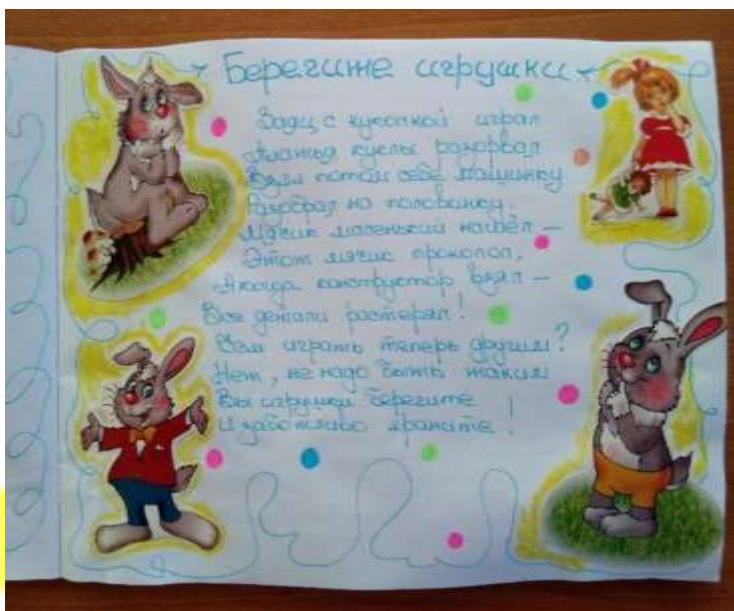 Берегите игрушки
Заяц с куколкой играл
Платья куклы разорвал
Взял потом себе машинку
Разобрал на половинку.
Мячик маленький нашёл —
Этот мячик проколол,
А когда конструктор взял —
Все детали растерял!
Чем играть теперь другим?
Нет, не надо быть таким
Вы игрушки берегите
И заботливо храните!